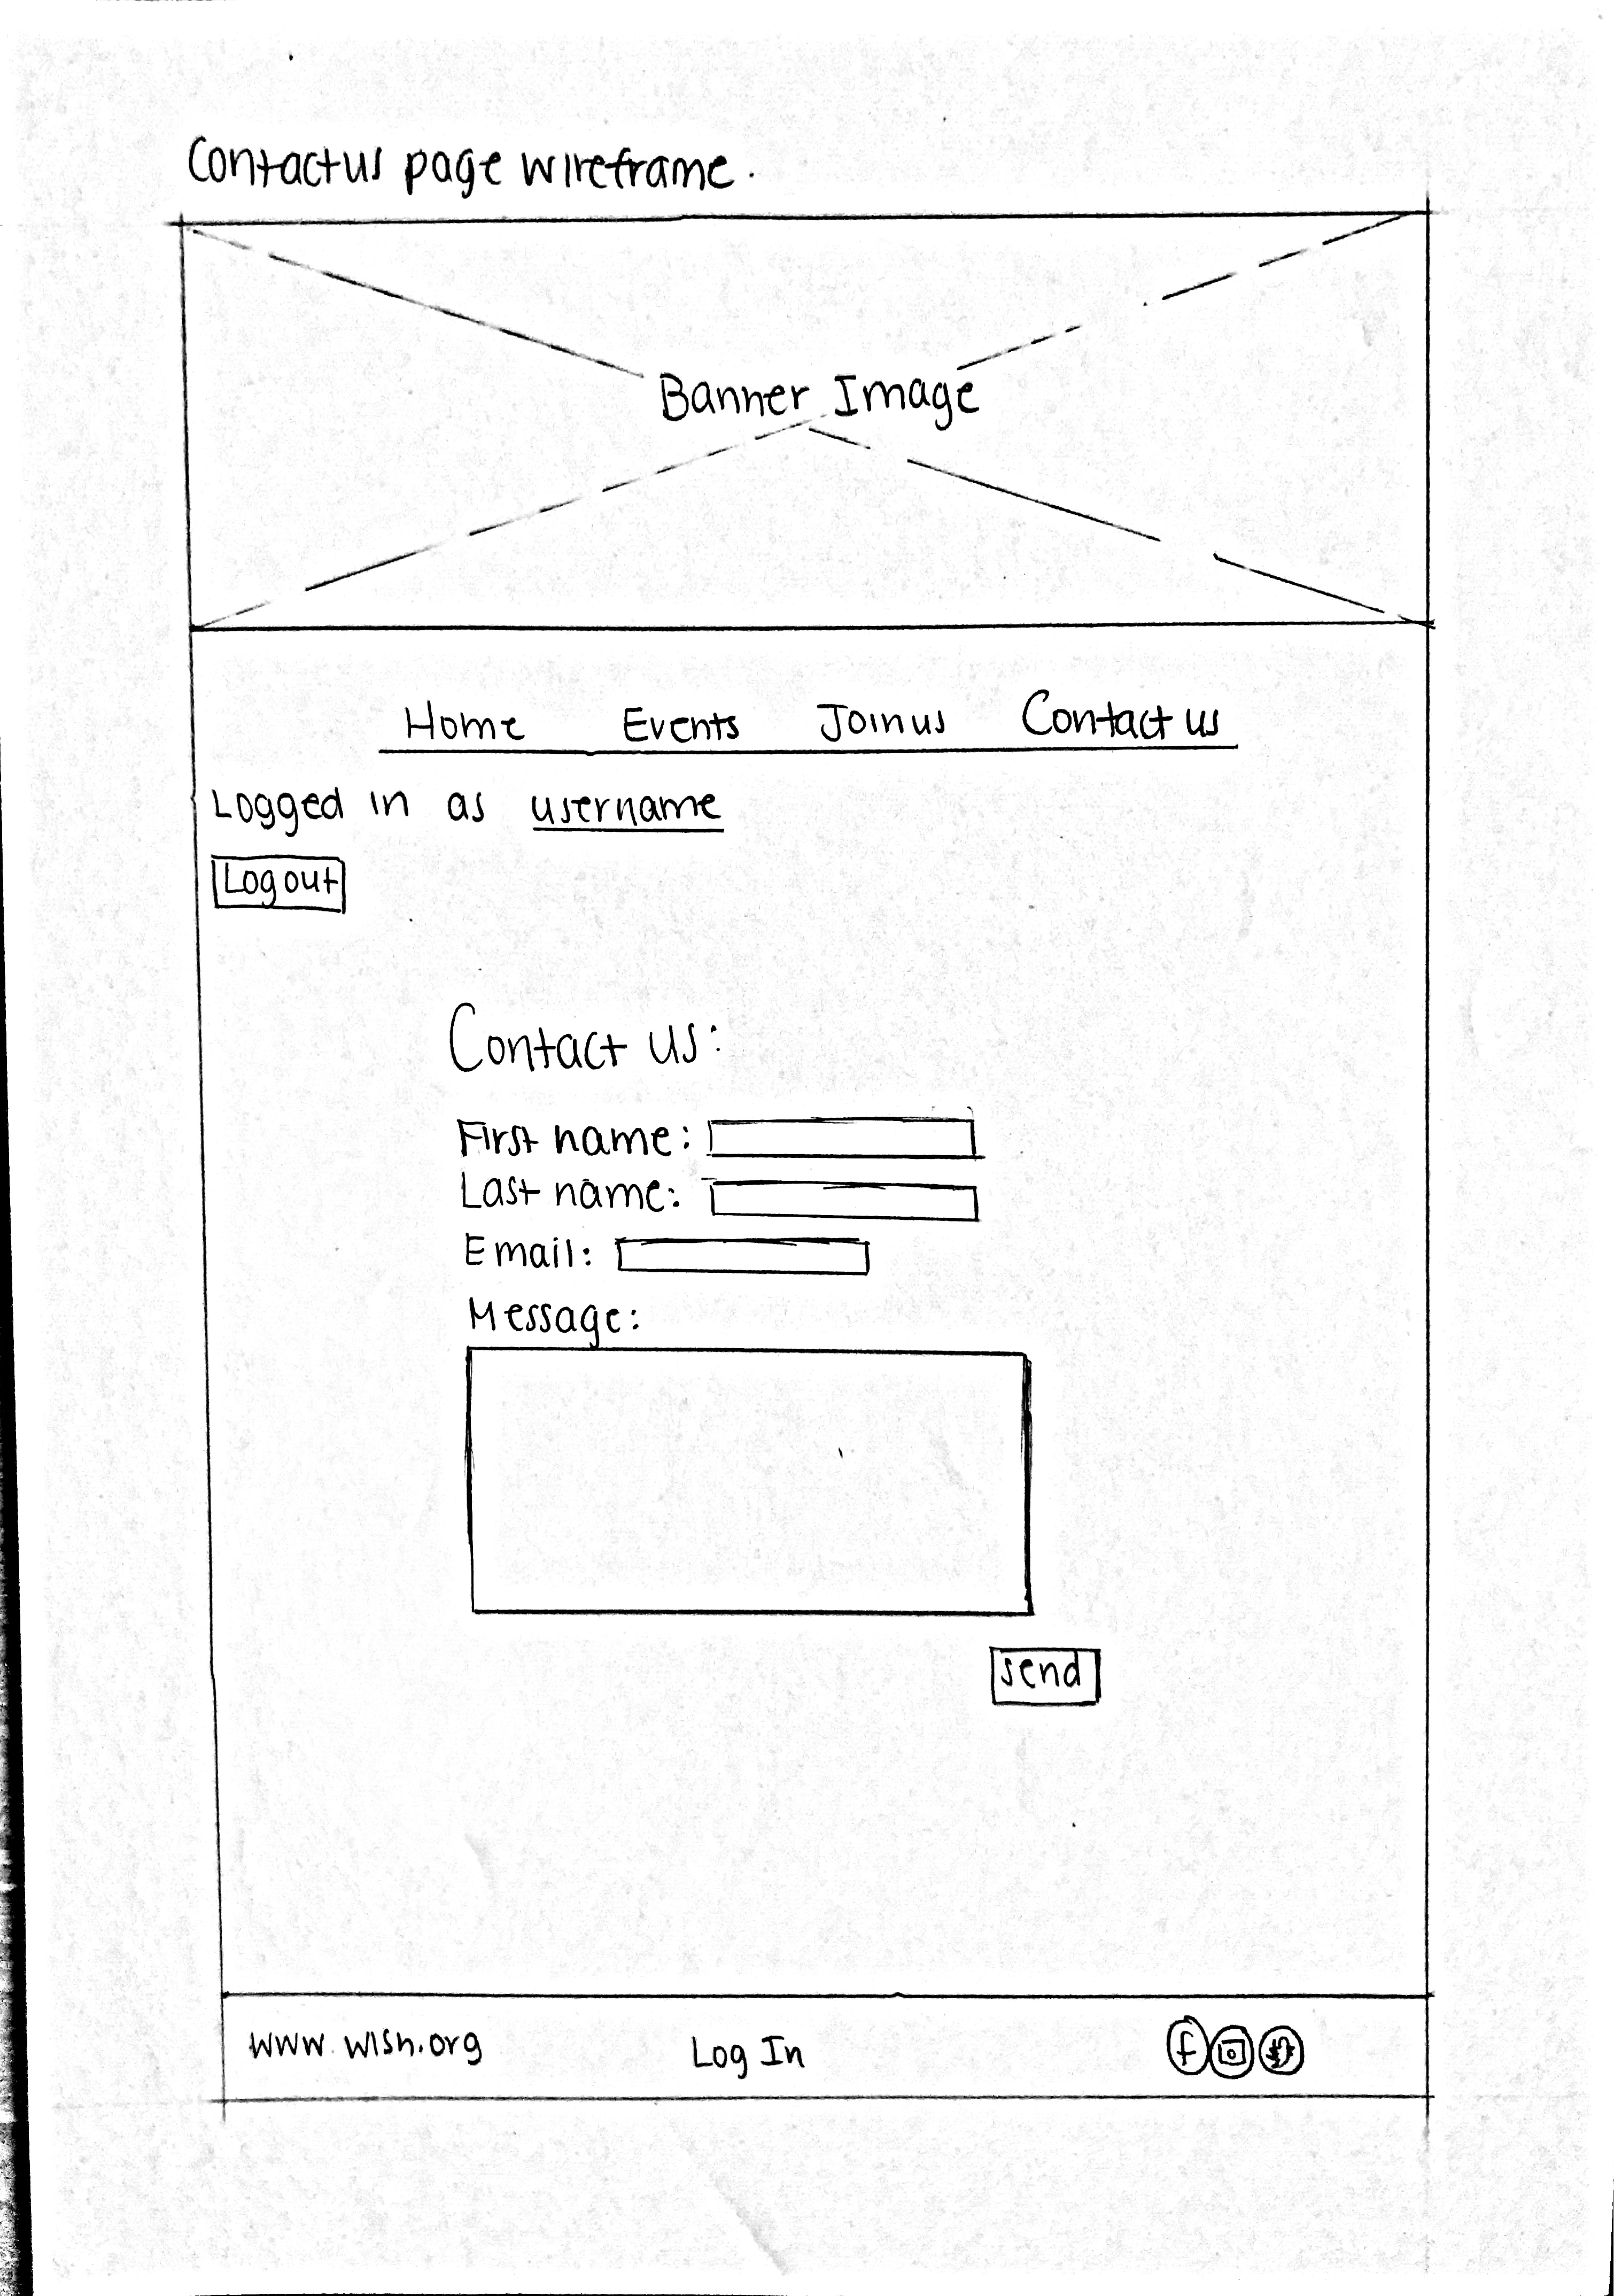 Contact us page wireframe.
Banner Image
Home Events Join us Contact us
Logged in as username
Logout
Contact us:
First name:
Last name:
Email:
Message:
send
www.wish.org Log In f